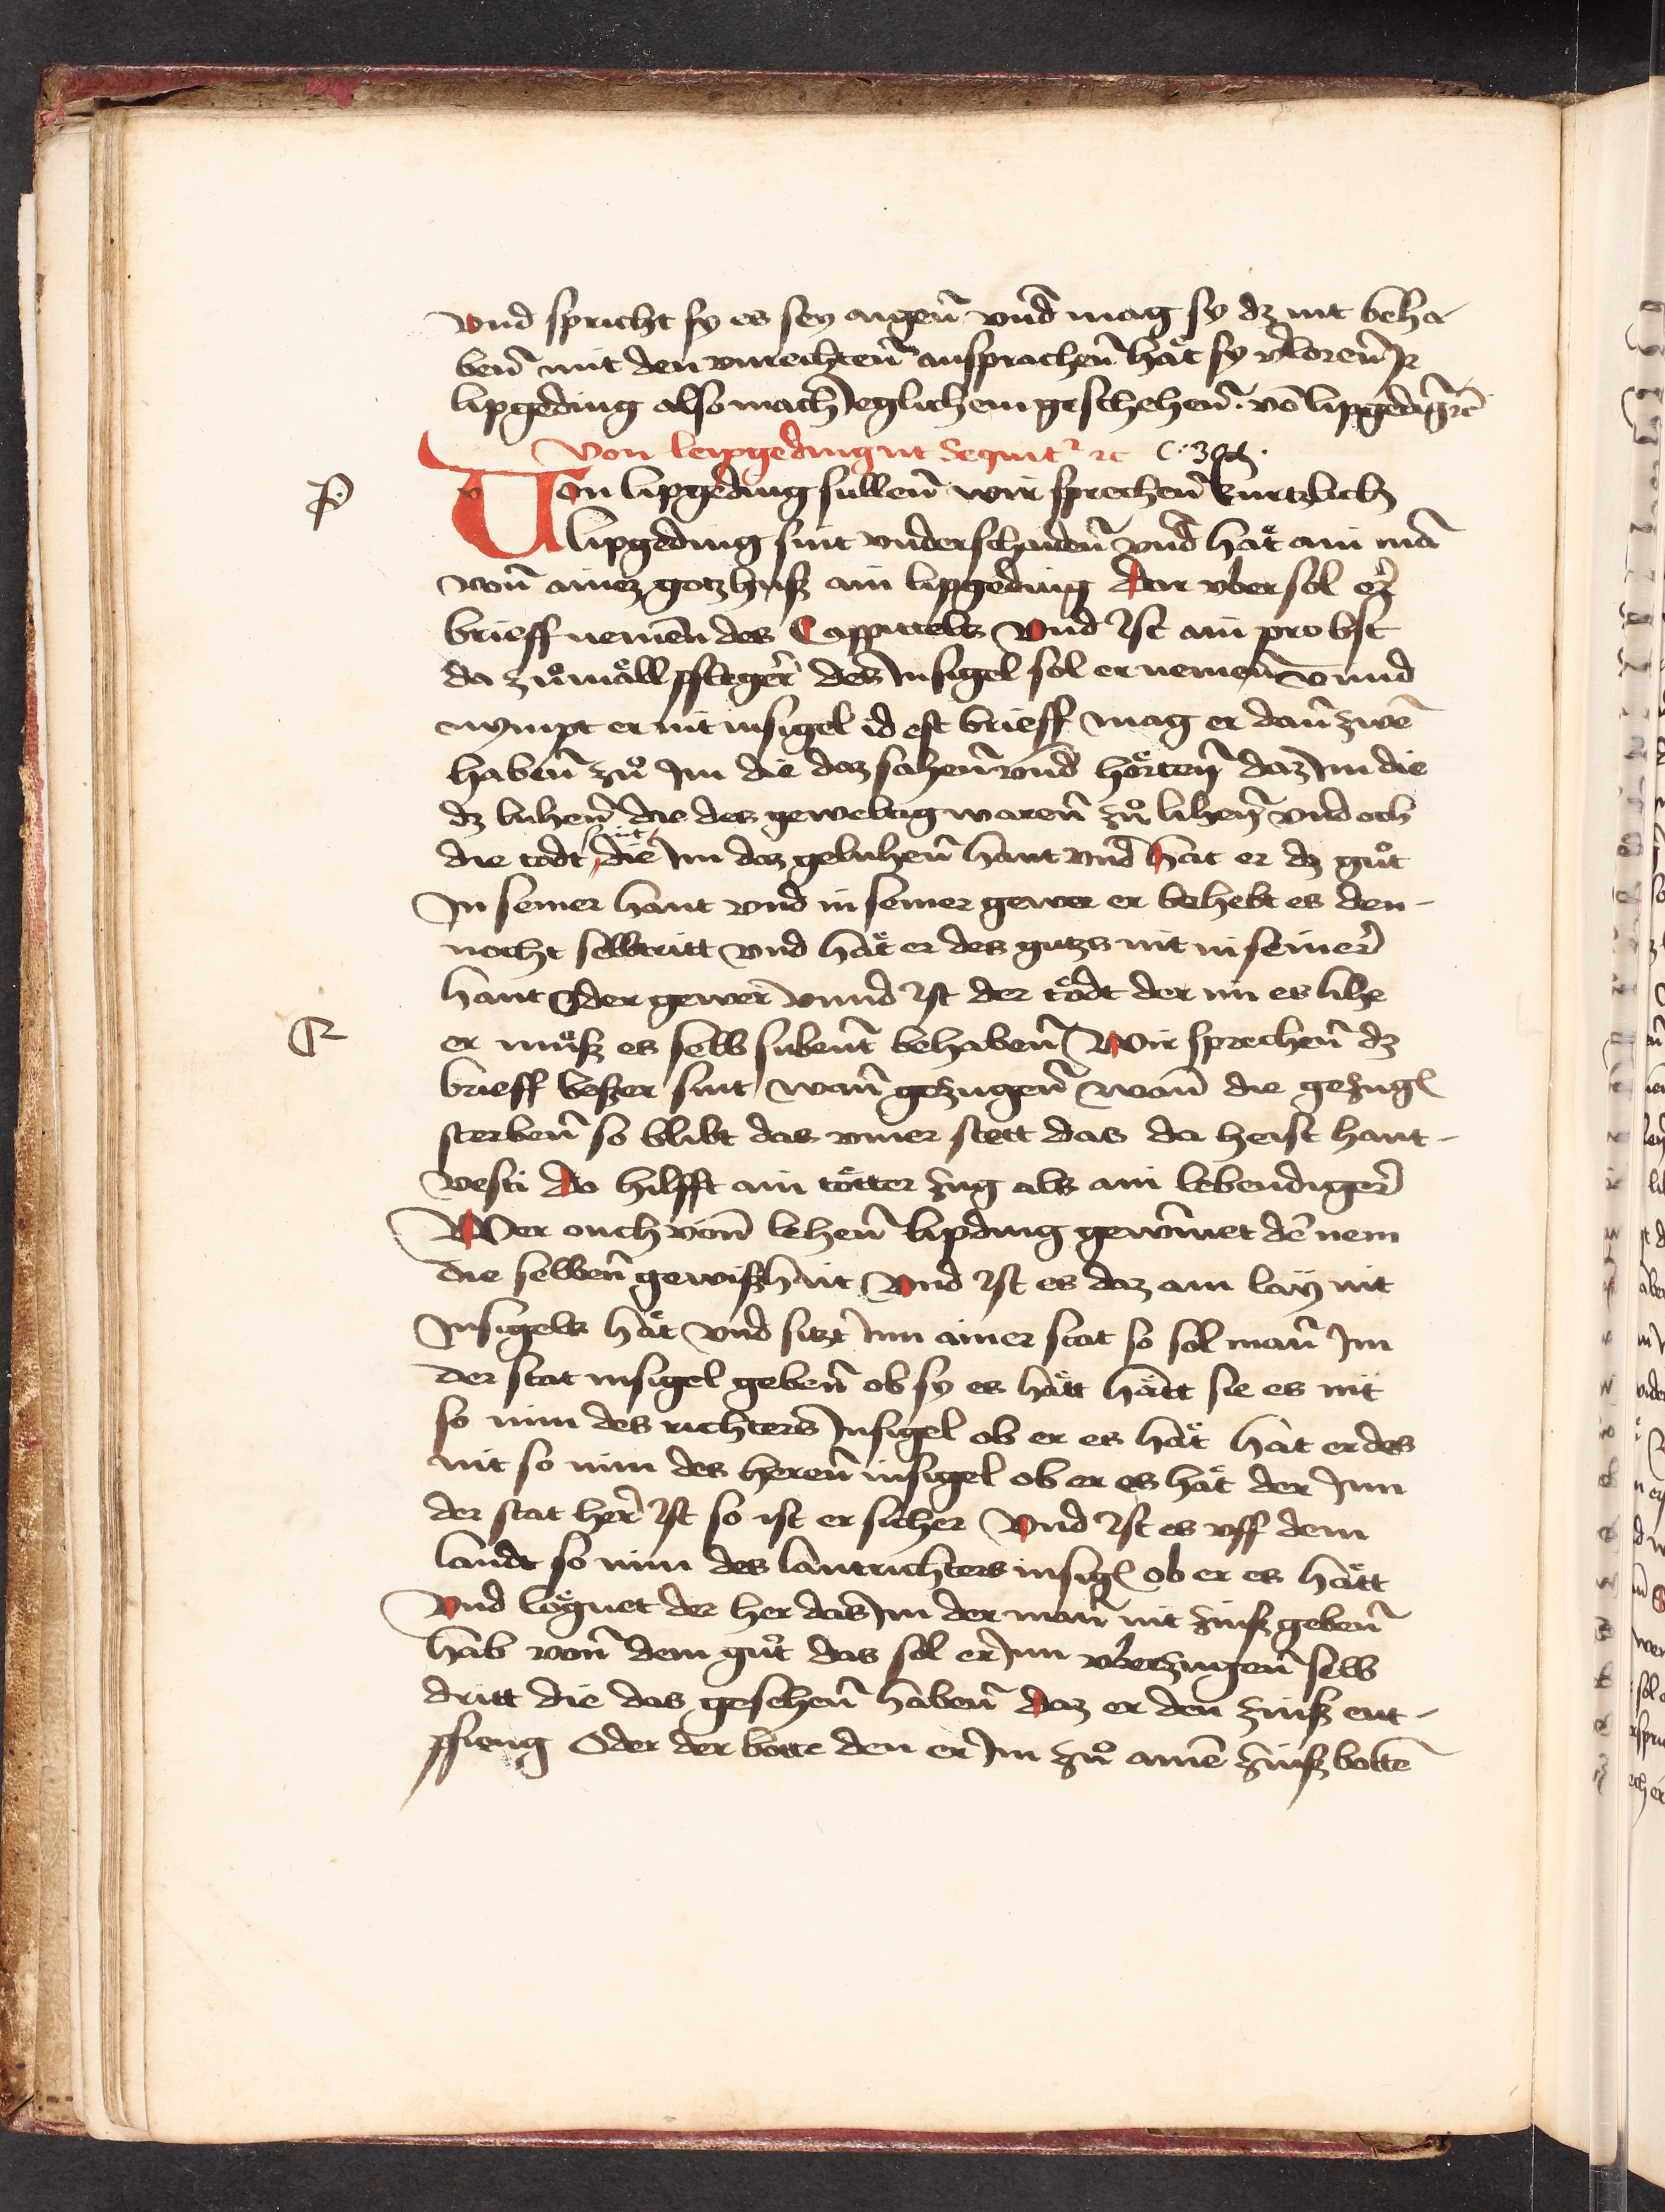 Vnd spricht sy es sey aigen̄ vnd̄ mag sy dz nit beha-
ben̄ mit den vnrechten̄ ansprachen̄ haͤt sy v̓loren̄ Jr
lipgeding also mach Jeglichem geschehen̄ · vō lipgedīg rc̄
Von leipgeding ut Sequit᷑ rc C. 3
Von lipgeding sullen̄ wir sprechen̄ kurtzlich
lipgeding sint vnderschaiden̄ vnd̄ haͤt ain mā
von̄ ainez gotzhuß ain lipgeding Dar vber sol er
brieff nemen̄ des Cappittels Vnd Ist ain probst
da zuͦmaͤll pfleger des Insigel sol er nemen̄ vnnd
nympt er nit insigel id est brieff mag er dan̄ zwē
haben̄ zuͦ Jm die daz sahen̄ vnd̄ hoͤrten̄ daz Jm die
dz luhen̄ die des geweltig waren̄ zuͦ lihen̄ vnd och
die todt sint die Jm daz geluhen̄ hant vnd̄ Hat er dz guͦt
Jn seiner hant vnd in seiner gewer er behebt es den-
nocht selbtritt vnd haͤt er des gutzs nit in seiner
hant Oder gewer vnnd Ist der toͤdt der im es lihe
er muͦß es selb subent behaben̄ Wir sprechen̄ dz
brieff beßer sint wan̄ gezugen̄ wan̄ die gezugl
sterben̄ so blibt das ymer stett das da heist hant-
vesti Do hilfft ain toͤtter zug als ain lebendiger
Wer ouch von̄ lehen̄ lipding gewīnet dē nem
die selben̄ gewißhait Vnd Ist es daz ain lay nit
Insigels haͤt vnd sitzt Jnn ainer stat so sol man̄ Jm
der stat insigel geben̄ ob sy es haͤtt haͤtt sie es nit
so nim des richters Insigel ob er es haͤt hat er des
nit so nim des heren̄ insigel ob er es haͤt der Jnn
der stat her Ist so ist er sicher Vnd Ist es vff dem
landt so nim des lantrichters insigl ob er es haͤtt
Vnd loͤgnet der her das Jm der man̄ nit zinß geben̄
hab von̄ dem guͦt das sol er Jnn vberzugen̄ selb
dritt die das gesehen̄ haben̄ Daz er den zinß ent-
pfieng Oder der botte den er Jm zuͦ ainē zinß bottē